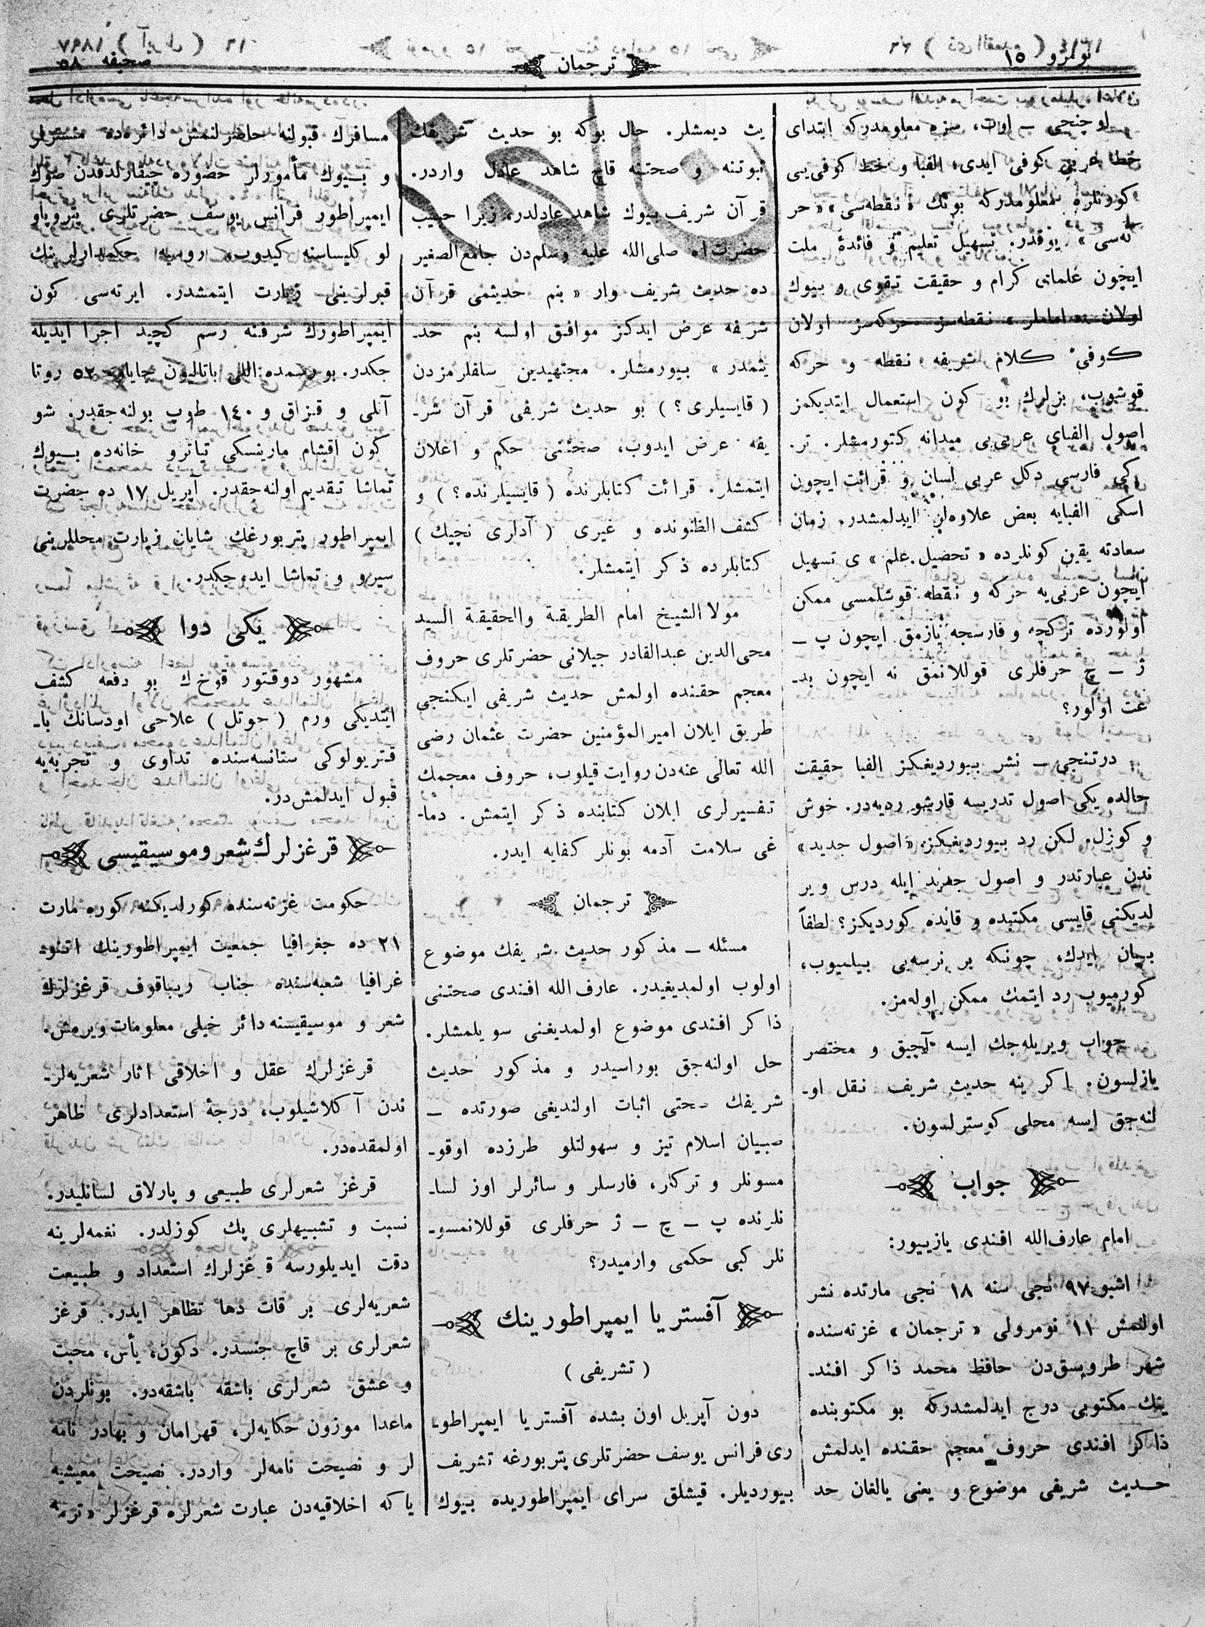 نومرو ١٥
ترجمان
صحيفه ٥٨
اوچنجى ــ اوت، سزه معلومدركه ابتداى
خط عربى كوفى ايدى، الفبا و خط كوفى‌يى
كورنلره معلومدركه بونك «نقطه‌سى» «حر
كه‌سى» يوقدر. تسهيل تعليم و فائدهٔ ملت
ايچون علماى كرام و حقيقت تقوى و بيوك
اولان «اماملر» نقطه‌سز حركه‌سز اولان
كوفىٔ كلام شريفه نقطه و حركه
قوشوب، بزلرك بو كون استعمال ايتديكمز
اصول الفباى عربى‌يى ميدانه كتورمشلر. تر.
كى فارسى دكل عربى لسان و قرائت ايچون
اسكى الفبايه بعض علاوه‌لر ايدلمشدر. زمان
سعادته يقين كونلرده «تحصيل علم» ى تسهيل
ايچون عربى‌يه حركه و نقطه قوشلمسى ممكن
اولورده تركچه و فارسجه يازمق ايچون پ ــ
ژ ــ چ حرفلرى قوللانمق نه ايچون بد-
عت اولور؟
درتنجى ــ نشر بيورديغكز الفبا حقيقت
حالده يكى اصول تدريسه قارشو رديه‌در. خوش
و كوزل. لكن رد بيورديغكز «اصول جديد»
ندن عبارتدر و اصول جديد ايله درس وير
لديكنى قايسى مكتبده و قايده كورديكز؟ لطفاً
بيان ايدك، چونكه بر نرسه‌يى بيلميوب،
كورميوب رد ايتمك ممكن اوله‌مز.
جواب ويريله‌جك ايسه آچيق و مختصر
يازلسون. اكر ينه حديث شريف نقل او-
لنه‌جق ايسه محلى كوسترلسون.
جواب
امام عارف‌الله افندى يازييور:
اشبو ٩٧ نجى سنه ١٨ نجى مارتده نشر
اولنمش ١١ نومرولى «ترجمان» غزته‌سنده
شهر طرويسق‌دن حافظ محمد ذاكر افند-
ينك مكتوبى درج ايدلمشدركه بو مكتوبنده
ذاكر افندى حروف معجم حقنده ايدلمش
حديث شريفى موضوع و يعنى يالغان حد
يث ديمشلر. حال بوكه بو حديث شريفك
ثبوتنه و صحتنه قاچ شاهد عادل واردر.
قرآن شريف بيوك شاهد عادلدر، زيرا حبيب
حضرت الله صلى‌الله عليه وسلم‌دن جامع‌الصغير
ده حديث شريف وار «بنم حديثمى قرآن
شريفه عرض ايدكز موافق اولسه بنم حد-
يثمدر» بيورمشلر. مجتهدين سافلرمزدن
(قايسيلرى؟) بو حديث شريفى قرآن شر-
يفه عرض ايدوب، صحتنى حكم و اعلان
ايتمشلر. قرائت كتابلرنده (قايسيلرنده؟) و
كشف الظنونده و غيرى (آدلرى نچيك)
كتابلرده ذكر ايتمشلر.
مولا الشيخ امام الطريقة والحقيقة السيد
محى‌الدين عبدالقادر جيلانى حضرتلرى حروف
معجم حقنده اولمش حديث شريفى ايكنجى
طريق ايلان اميرالمؤمنين حضرت عثمان رضى
الله تعالى عنه‌دن روايت قيلوب، حروف معجمك
تفسيرلرى ايلان كتابنده ذكر ايتمش. دما-
غى سلامت آدمه بونلر كفايه ايدر.
ترجمان
مسئله ــ مذكور حديث شريفك موضوع
اولوب اولمديغيدر. عارف‌الله افندى صحتنى
ذاكر افندى موضوع اولمديغنى سويلمشلر.
حل اولنه‌جق بوراسيدر و مذكور حديث
شريفك صحتى اثبات اولنديغى صورتده ــ
صبيان اسلام تيز و سهولتلو طرزده اوقو-
مسونلر و تركلر، فارسلر و سائرلر اوز لسا-
نلرنده پ ــ چ ــ ژ حرفلرى قوللانمسو-
نلر كبى حكمى وارميدر؟
آفستريا ايمپراطورينك
(تشريفى)
دون آپريل اون بشده آفستريا ايمپراطو،
رى فرانس يوسف حضرتلرى پتربورغه تشريف
بيورديلر. قيشلق سراى ايمپراطوريده بيوك
مسافرك قبولنه حاضرلنمش دائره‌ده منسترلر
و بيوك مأمورلر حضوره چيقارلدقدن صوك
ايمپراطور فرانس يوسف حضرتلرى پتروپاو
لو كليساسنه كيدوب روسيه حكمدارلرينك
قبرلرينى زيارت ايتمشدر. ايرته‌سى كون
ايمپراطورك شرفنه رسم كچيد اجرا ايديله
جكدر. بو رسمده اللى باتاليون چاياده ٥٢ روتا
آتلى و قزاق و ١٤٠ طوپ بولنه‌جقدر. شو
كون اقشام مارينسكى تياترو خانه‌ده بيوك
تماشا تقديم اولنه‌جقدر. آپريل ١٧ ده حضرت
ايمپراطور پتربورغك شايان زيارت محللرينى
سيرو و تماشا ايده‌جكدر.
يكى دوا
مشهور دوقتور قوخ‌ك بو دفعه كشف
ايتديكى ورم (حوتل) علاجى اودسانك با-
قتريولوكى ستانسه‌سنده تداوى و تجربه‌يه
قبول ايدلمش‌در.
قرغزلرك شعر و موسيقيسى
حكومت غزته‌سنده كورلديكنه كوره مارت
٢١ ده جغرافيا جمعيت ايمپراطورينك اتنو-
غرافيا شعبه‌سنده جناب ريباقوف قرغزلرك
شعر و موسيقيسنه دائر خيلى معلومات ويرمش.
قرغزلرك عقل و اخلاقى اثار شعريه‌لر-
ندن آكلاشيلوب، درجهٔ استعدادلرى ظاهر
اولمقده‌در.
قرغز شعرلرى طبيعى و پارلاق لسانليدر.
نسبت و تشبيهلرى پك كوزلدر. نغمه‌لرينه
دقت ايديلورسه قرغزلرك استعداد و طبيعت
شعريه‌لرى بر قات دها تظاهر ايدر. قرغز
شعرلرى بر قاچ جنسدر. دكون، يأس، محبت
و عشق شعرلرى باشقه باشقه‌در. بونلردن
ماعدا موزون حكايه‌لر، قهرامان و بهادر نامه
لر و نصيحت نامه‌لر واردر. نصيحت معيشيه
ياكه اخلاقيه‌دن عبارت شعرلره قرغزلر «ترمه